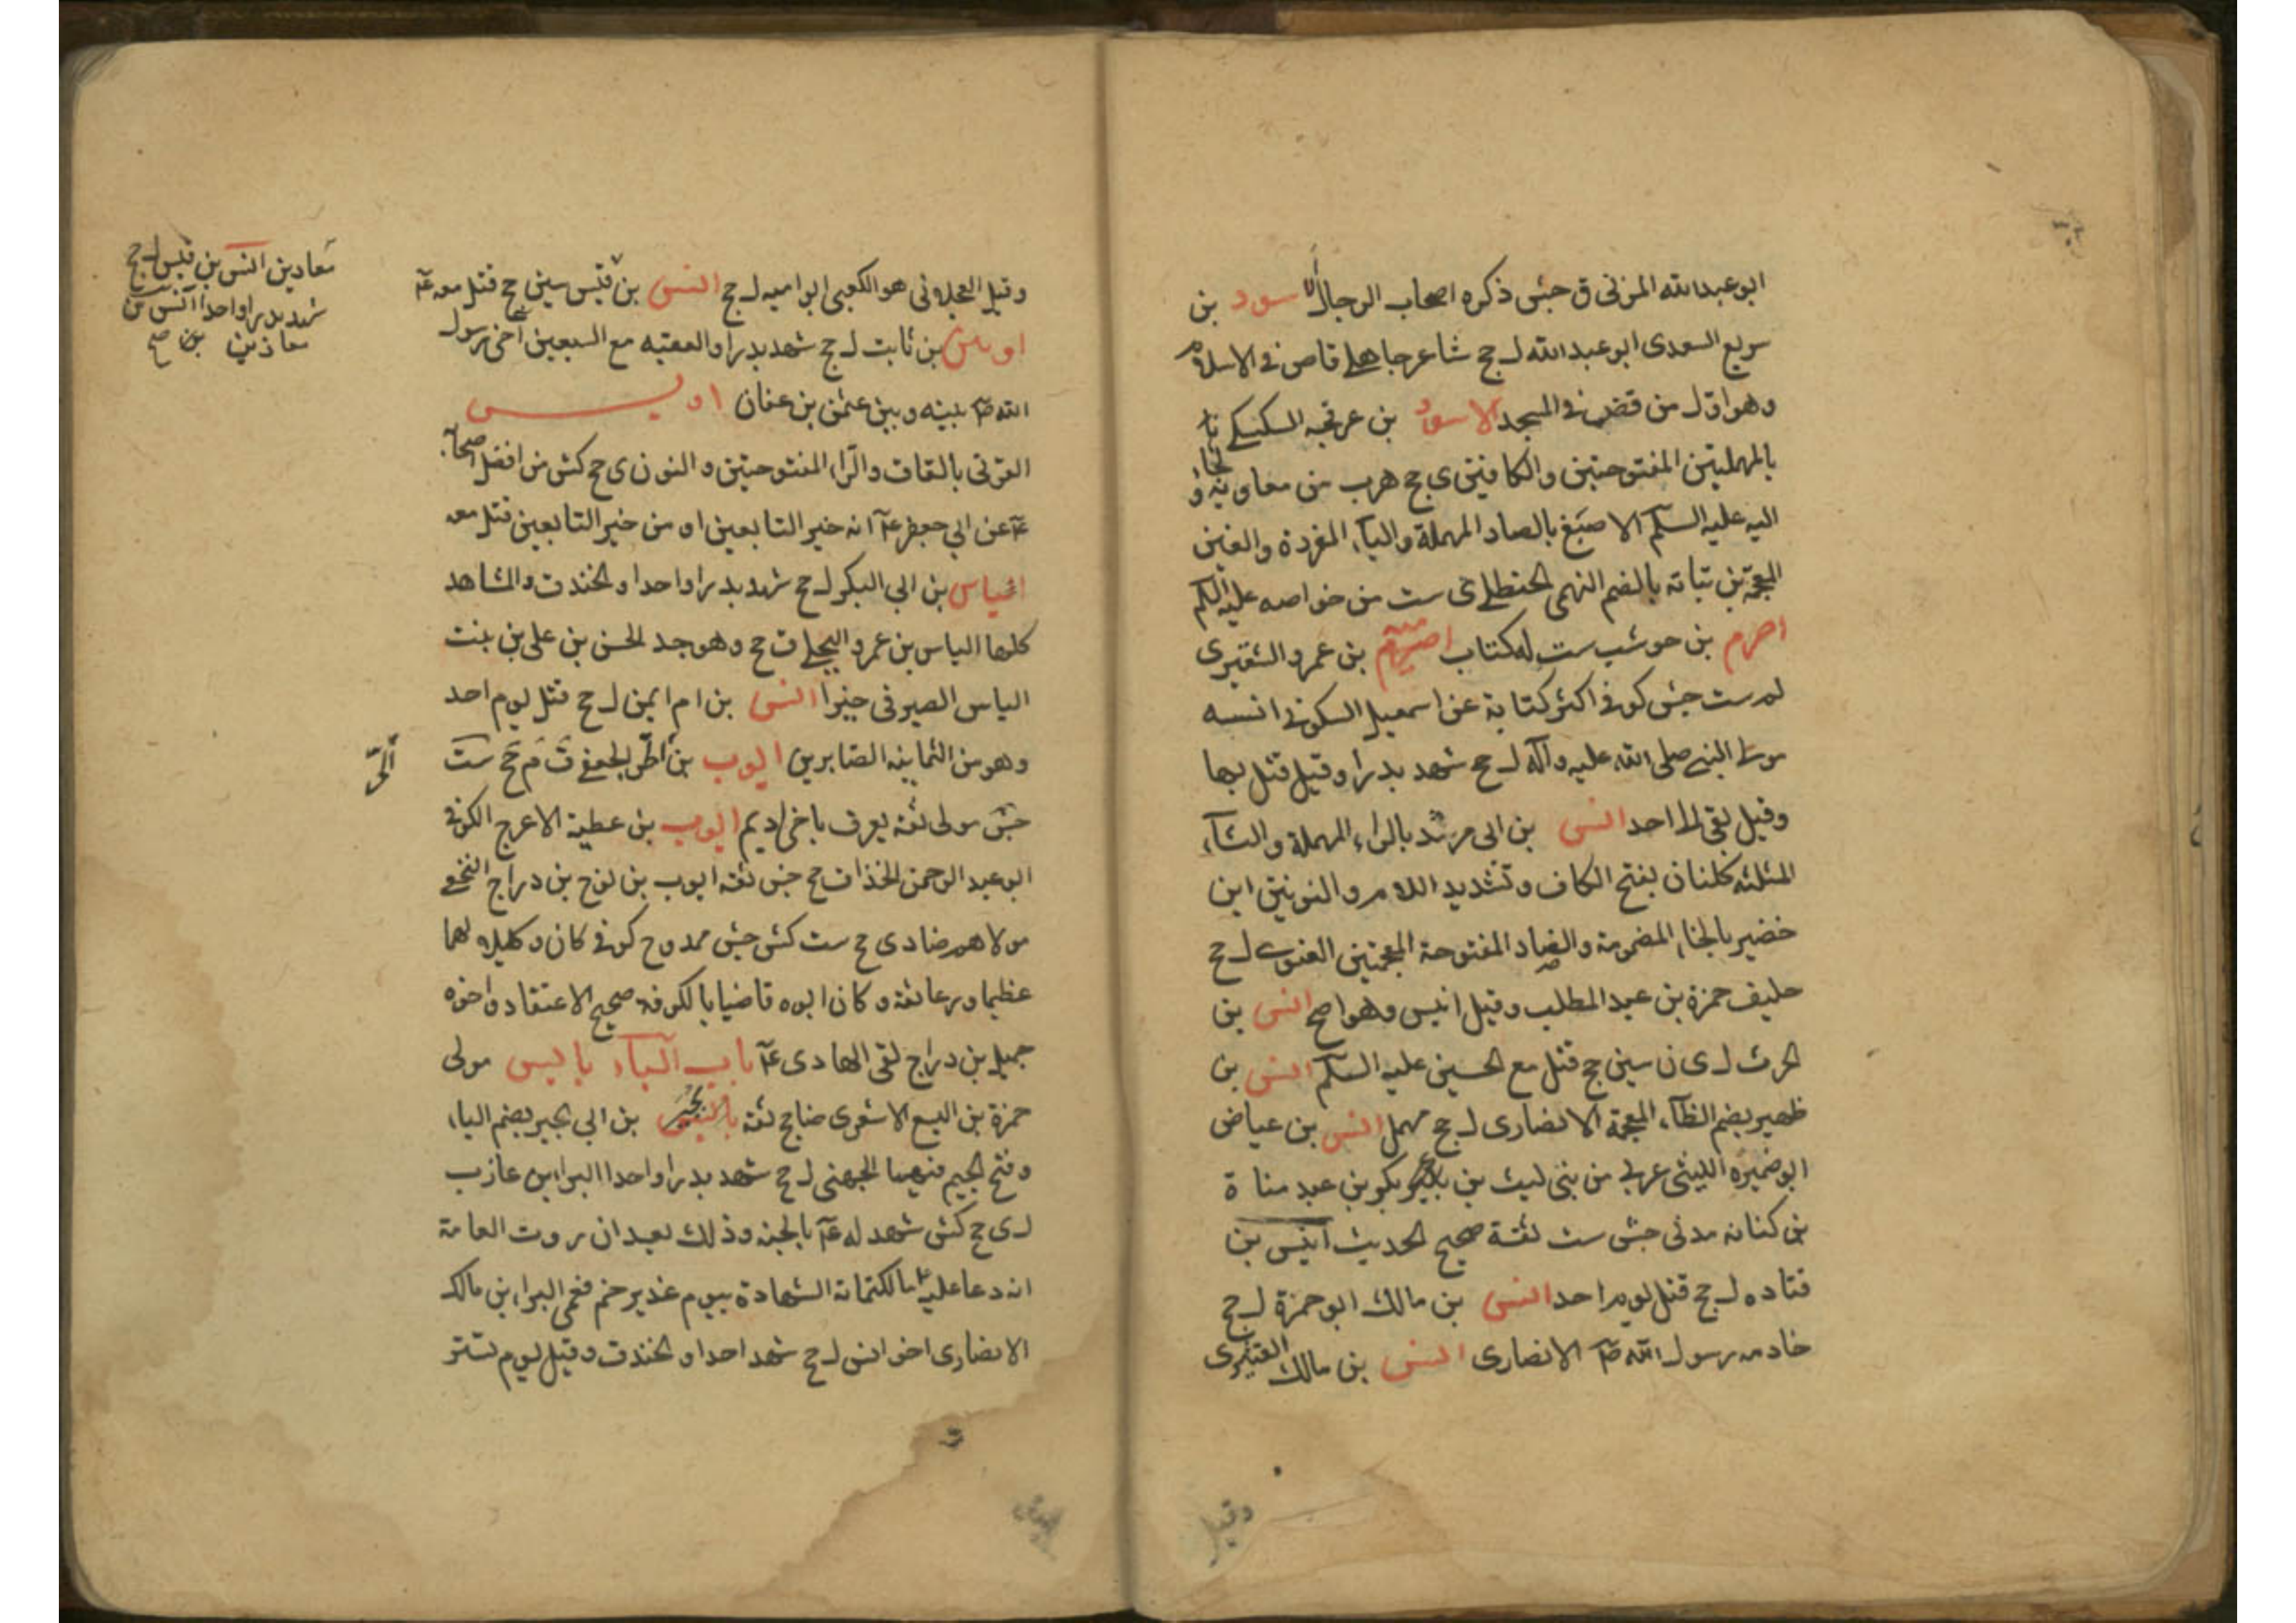 ابو عبدالله المزنى ق جش ذكره اصحاب الرجال الاسود بن
سريع السعدى ابو عبد الله ل جج شاعر جاهلى قاص فى الاسلام
وهو اول من قص فى المسجد الاسود بن عرفجه السكسكى
بالمهملتين المفتوحتين والكافين ى جج هرب من معاوية و لجأ
اليه عليه السلام الاصبغ بالصاد المهملة والباء المفردة والغين
المعجمة بن نباته بالضم التميمى الحنظلى ى ست من خواصه عليه السلم
اصرم بن حوشب ست له كتاب اصيرم بن عمرو الشقيرى
له ست جش كوفى اكثر كتابة عن اسمعيل السكونى انسه
مولى النبى صلى الله عليه وآله ل جج شهد بدرا وقيل قتل بها
وقيل بقى الى احد انس بن ابى مرثد بالراء المهملة والثاء
المثلثه كلنان بفتح الكاف وتشديد اللام والنونين ابن
خضير بالخاء المضمومة والضاد المفتوحة المعجمتين الغنوى ل جج
حليف حمزة بن عبد المطلب وقيل انيس وهو اصح انس بن
الحرث ل ى ن سين جج قتل مع الحسين عليه السلم انس بن
ظهير بضم الظاء المعجمة الانصارى ل جج مهمل انس بن عياض
ابو ضميره الليثى عربى من بنى ليث بن بكر بن عبد مناة
بن كنانه مدنى جش ست ثقة صحيح الحديث انيس بن
قتاده ل جج قتل يوم احد انس بن مالك ابو حمزة ل جج
خادم رسول الله ص الانصارى انس بن مالك القشيرى
وقيل
وقيل العجلونى هو الكعبى ابو اميه ل جج انس بن قيس سين جج قتل معه ع
اوس بن ثابت ل جج شهد بدرا والعقبه مع السبعين آخى رسول
الله ص بينه وبين عثمن بن عفان اويس
القرنى بالقاف والراء المفتوحتين والنون ى جج كش من افضل اصحابه
ع عن ابي جعفر ع انه خير التابعين او من خير التابعين قتل معه
اياس بن ابي البكر ل جج شهد بدرا واحدا والخندق والمشاهد
كلها الياس بن عمرو البجلى ق جج وهو جد الحسن بن على بن بنت
الياس الصيرفى خير انس بن ام ايمن ل جج قتل يوم احد
وهو من الثمانيه الصابرين ايوب بن الحر الجعفى ق م جج ست
جش مولى ثقه يعرف باخى اديم ايوب بن عطية الاعرج الكوفى
ابو عبد الرحمن الحذا ق جج جش ثقه ايوب بن نوح بن دراج النخعى
مولاهم ضا دى جج ست كش جش ممدوح كوفى كان وكيلا لهما
عظيما ورعا ثقة وكان ابوه قاضيا بالكوفه صحيح الاعتقاد واخوه
جميل بن دراج لقى الهادى ع باب الباء باليس مولى
حمزة بن اليسع الاشعرى ضا جج ثقه بجير بن ابي بجير بضم الباء
وفتح الجيم فيهما الجهنى ل جج شهد بدرا واحدا البراء بن عازب
ل ى جج كش شهد له ع بالجنه وذلك بعد ان روت العامة
انه دعا عليه لكتمانه الشهادة بيوم غدير خم فعمى البراء بن مالك
الانصارى اخو انس ل جج شهد احدا والخندق وقتل يوم تستر
معاذ بن انس بن قيس ل جج
شهد بدرا واحدا انس بن
معاذ بن صح